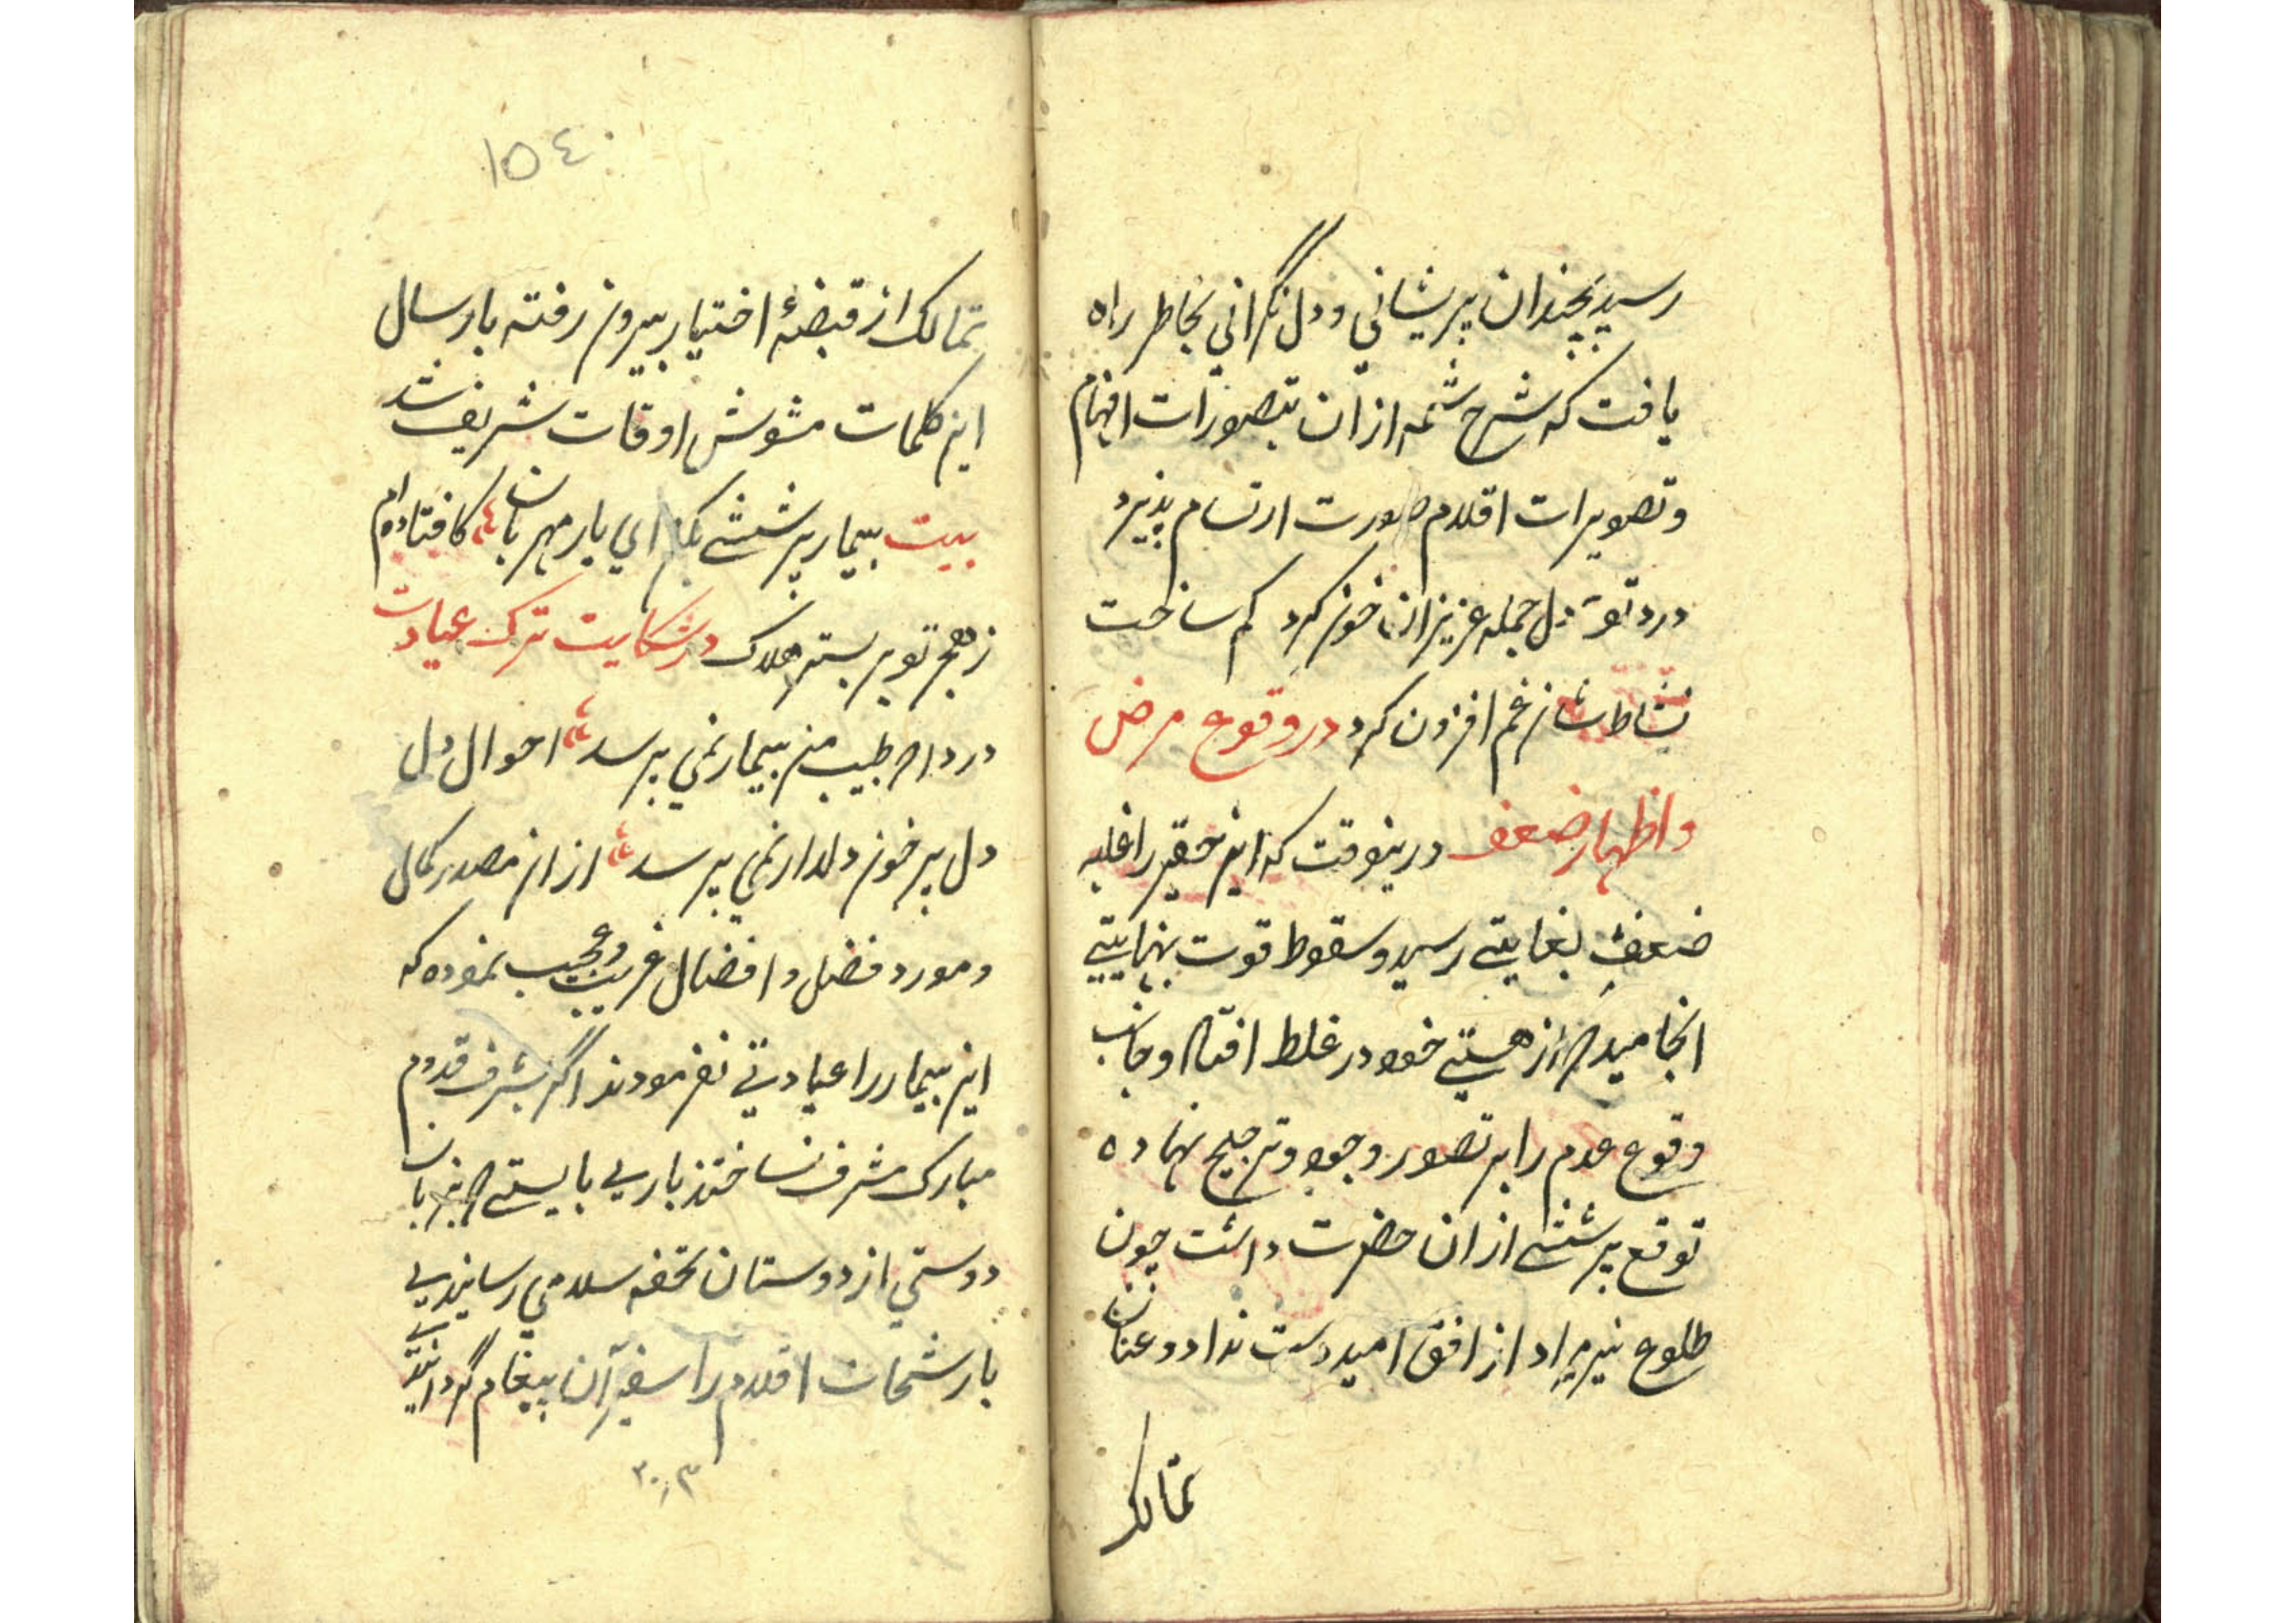 رسید بچندان پریشانی و دل نگرانی بخاطر راه
یافت که شرح شمه از آن بتصورات افهام
و تصویرات اقلام صورت ارتسام پذیرد
درد تو دل جمله عزیزان خون کرد کم ساخت
نشاط شان غم افزون کرد در وقوع مرض
و اظهار ضعف درینوقت که این حقیر را غلبه
ضعف بغایتی رسید و سقوط قوت بنهایتی
انجامید که از هستی خود در غلط افتاد و جانب
وقوع عدم را بر تصور وجود ترجیح نهاده
توقع پرسشی از ان حضرت داشت چون
طلوع نیر مراد از افق امید دست نداد و عنان
تمالک
١٥٤
تمالک از قبضهٔ اختیار بیرون رفته بارسال
این کلمات مشوش اوقات شریف شد
بیت بیمار پرسشی بکن ای یار مهربان کافتاده‌ام
ز هجر تو بر بستر هلاک در شکایت ترک عیادت
درداکه طبیب من بیمار نمی پرسد احوال دل
دل پر خون دلدار نمی پرسد از ان مصدر کمال
و مورد فضل و افضال غریب و عجیب نموده که
این بیمار را عیادتی نفرمودند اگر بشرف قدوم
مبارک مشرف نساختند باری بایستی که بزبان
دوستی از دوستان تحفه سلامی رسانیدی
یا رشحات اقلام را سفیر آن پیغام گردانیدی